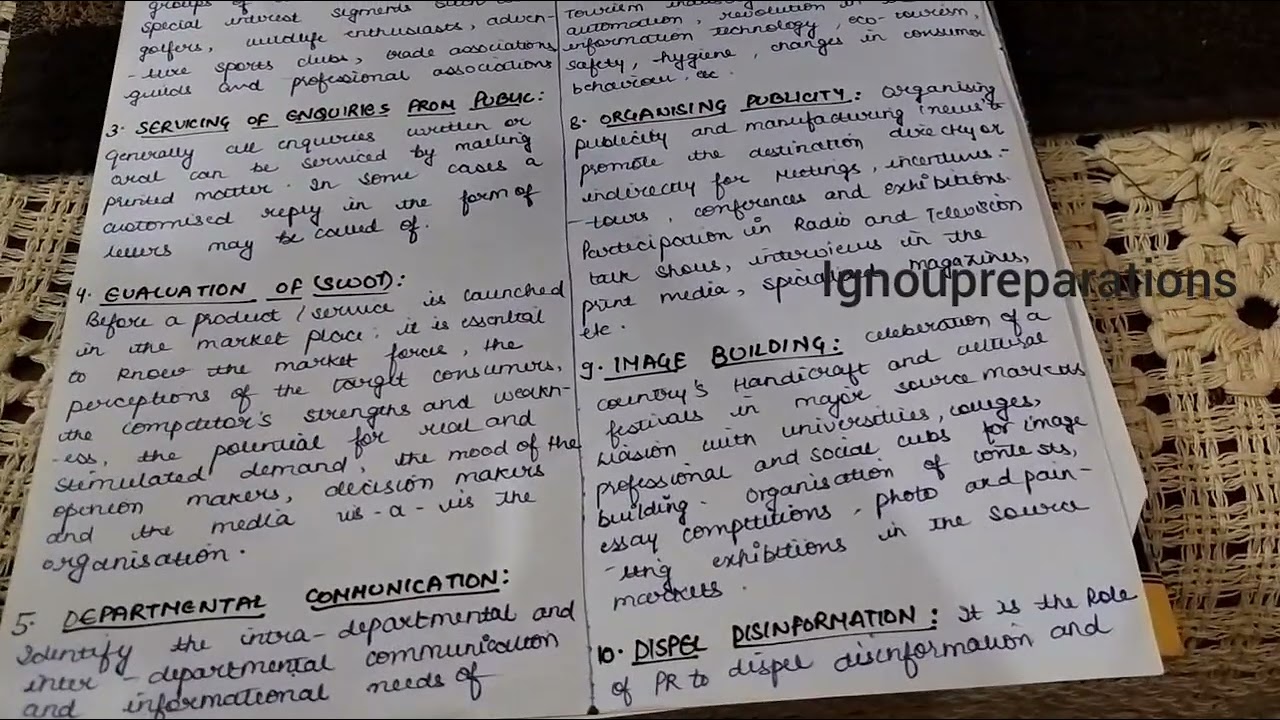 groups of
special interest segments such
golfers, wildlife enthusiasts, adven-
-ture sports clubs, trade associations
guilds and professional associations
3. SERVICING OF ENQUIRIES FROM PUBLIC:
Generally all enquiries written or
oral can be serviced by mailing
printed matter. In some cases a
customised reply in the form of
letters may be called of.
4. EVALUATION OF (SWOT):
Before a product / service is launched
in the market place: it is essential
to know the market forces, the
perceptions of the target consumers,
the competitor's strengths and weakn-
-ess, the potential for real and
stimulated demand, the mood of the
opinion makers, decision makers
and the media vis-a-vis the
organisation.
5. DEPARTMENTAL COMMUNICATION:
Identify the intra-departmental and
inter-departmental communication
and informational needs of
Tourism
automation, revolution in
information technology, eco-tourism,
safety, hygiene, changes in consumer
behaviour, etc.
8. ORGANISING PUBLICITY: Organising
publicity and manufacturing 'news' &
promote the destination directly or
indirectly for meetings, incentives-
-tours, conferences and exhibitions.
Participation in Radio and Television
talk shows, interviews in the
print media, magazines,
etc.
9. IMAGE BUILDING: celebration of a
country's Handicraft and cultural
festivals in major source markets
Liasion with universities, colleges,
professional and social cubs for image
building. Organisation of contests,
essay comptitions, photo and pain-
-ting exhibitions in the source
markets.
10. DISPEL DISINFORMATION: It is the Role
of PR to dispel disinformation and
Ignoupreparations